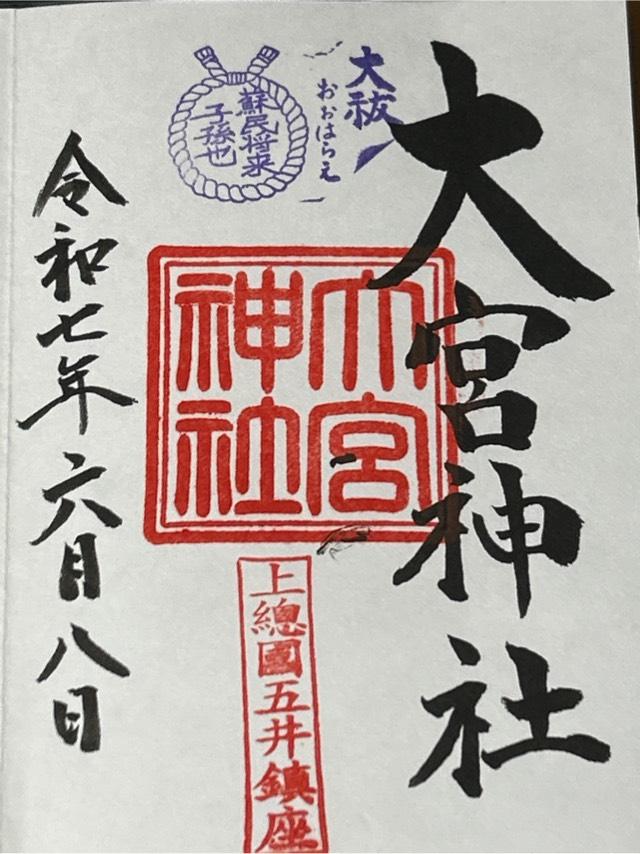 大宮神社
大祓
おおはらえ
蘇民将来
子孫也
大宮
神社
上總國五井鎮座
令和七年六月八日